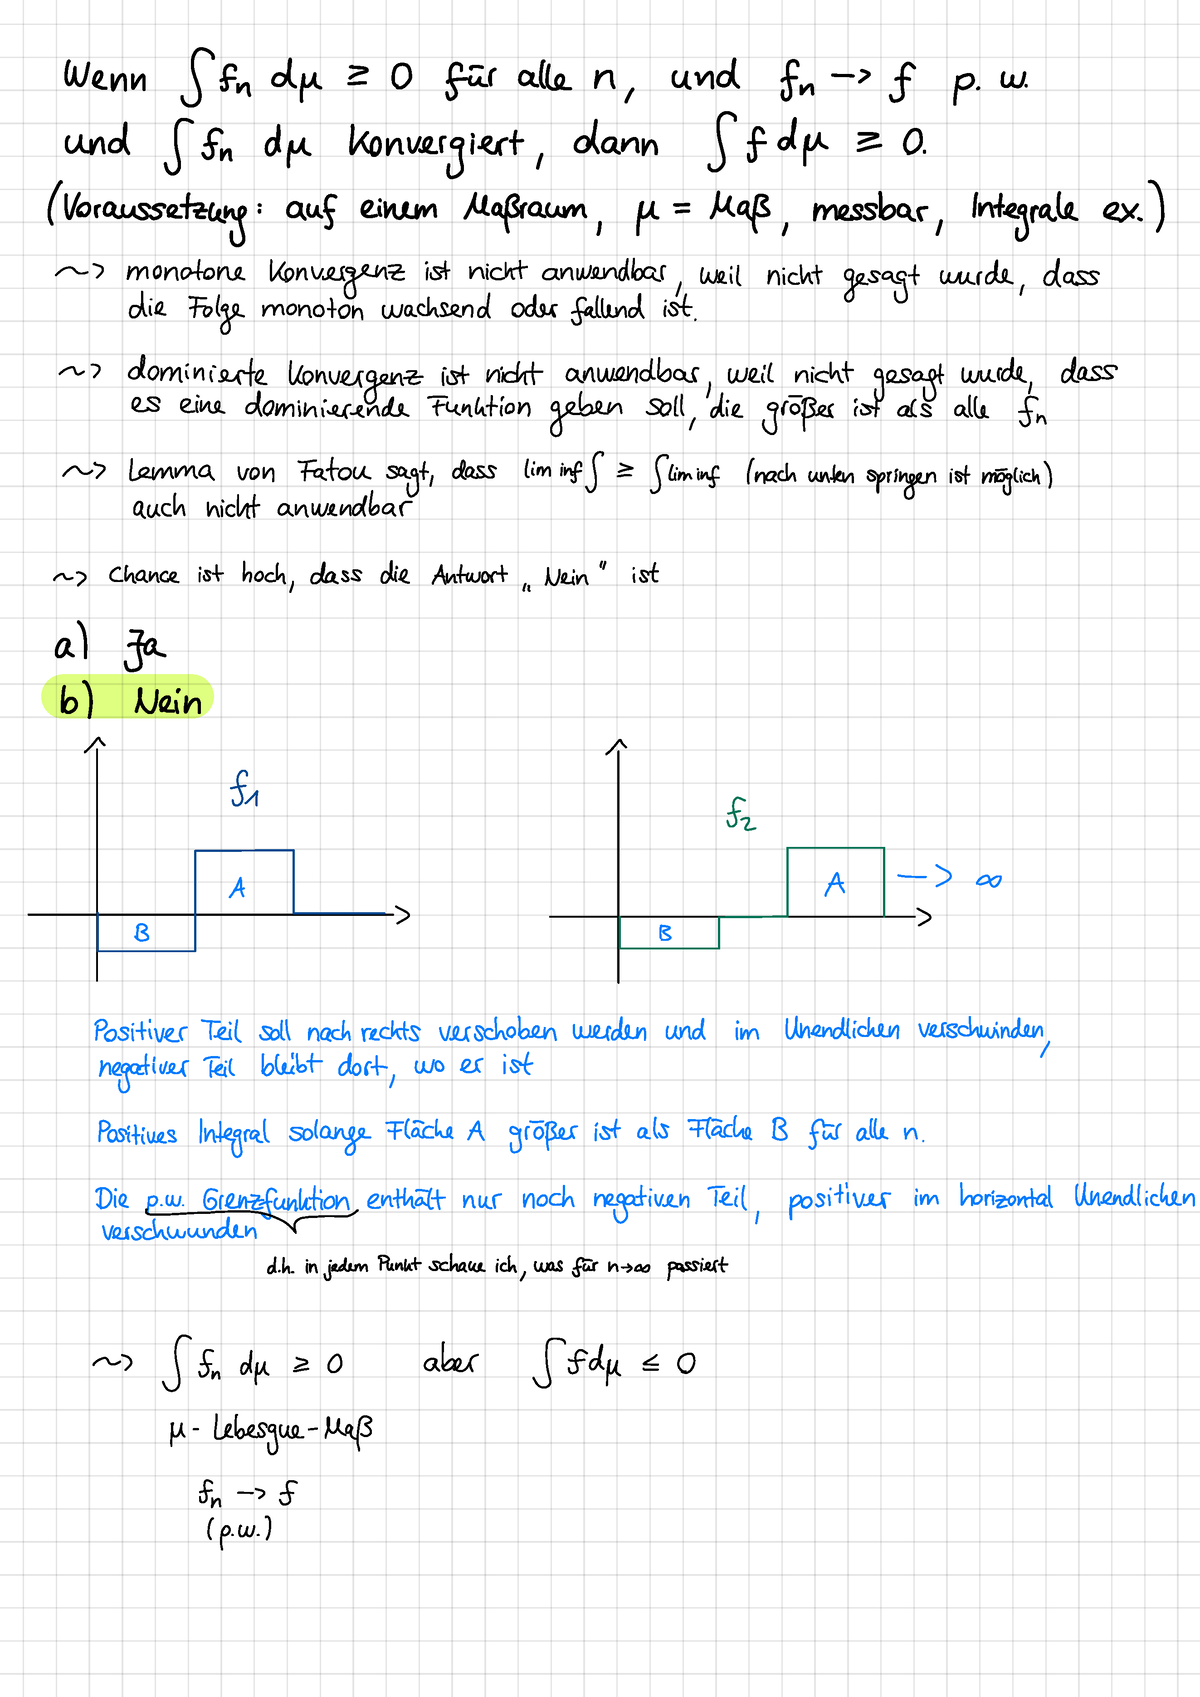 Wenn ∫ fn dμ ≥ 0 für alle n, und fn -> f p. w.
und ∫ fn dμ konvergiert, dann ∫ f dμ ≥ 0.
(Voraussetzung: auf einem Maßraum, μ = Maß, messbar, Integrale ex.)
~> monotone Konvergenz ist nicht anwendbar, weil nicht gesagt wurde, dass
die Folge monoton wachsend oder fallend ist.
~> dominierte Konvergenz ist nicht anwendbar, weil nicht gesagt wurde, dass
es eine dominierende Funktion geben soll, die größer ist als alle fn
~> Lemma von Fatou sagt, dass lim inf ∫ ≥ ∫ lim inf (nach unten springen ist möglich)
auch nicht anwendbar
~> Chance ist hoch, dass die Antwort „Nein" ist
a) Ja
b) Nein
f1
A
B
f2
A -> ∞
B
Positiver Teil soll nach rechts verschoben werden und im Unendlichen verschwinden,
negativer Teil bleibt dort, wo er ist
Positives Integral solange Fläche A größer ist als Fläche B für alle n.
Die p.w. Grenzfunktion enthält nur noch negativen Teil, positiver im horizontal Unendlichen
verschwunden
d.h. in jedem Punkt schaue ich, was für n→∞ passiert
~> ∫ fn dμ ≥ 0 aber ∫ f dμ ≤ 0
μ - Lebesgue-Maß
fn -> f
(p.w.)